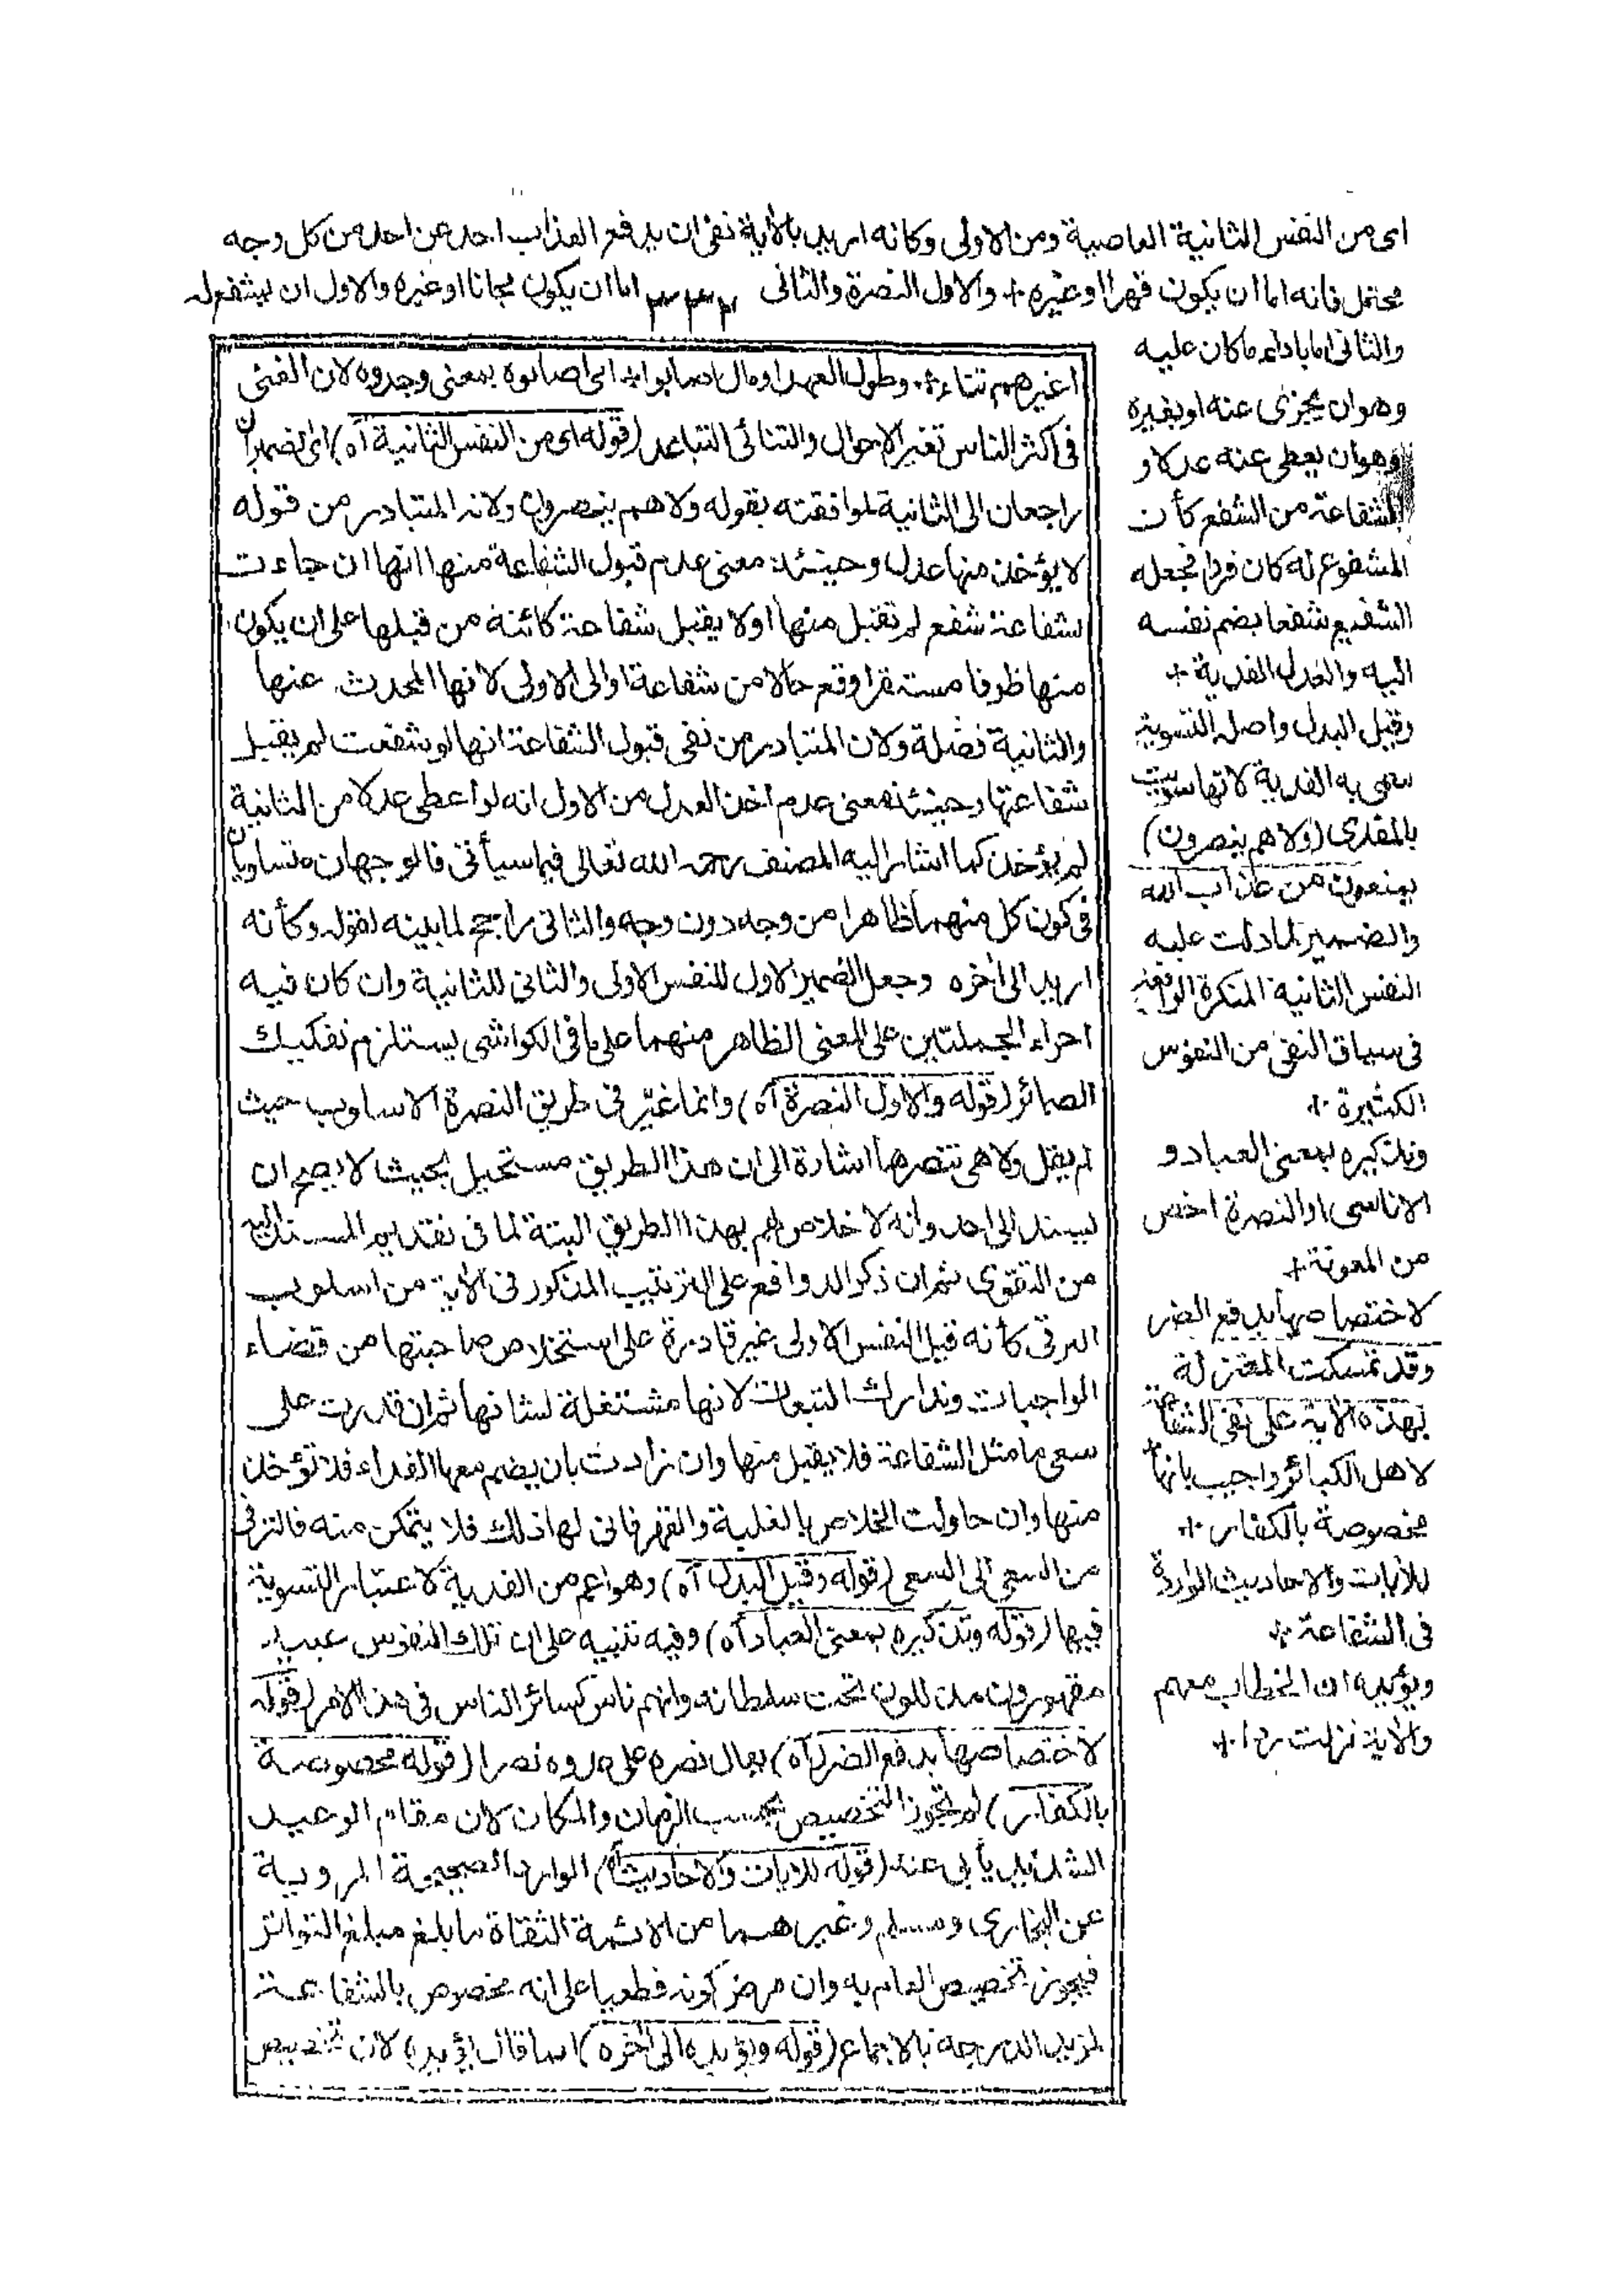 اى من النفس الثانية العاصية ومن الاولى وكانه اريد بالأية نفى ان يدفع العذاب احد عن احد من كل وجه
محتمل فانه اما ان يكون قهرا او غيره + والاول النصرة والثانى ٣٣٢ اما ان يكون مجانا او غيره والاول ان يشفع له
والثانى اما باداء ما كان عليه
وهو ان يجزى عنه او بغيره
وهو ان يعطى عنه عدلا و
الشفاعة من الشفع كأن
المشفوع له كان فردا فجعله
الشفيع شفعا بضم نفسه
اليه والعدل الفدية +
وقيل البدل واصله التسوية
سمى به الفدية لانها سويت
بالمفدى (ولا هم ينصرون)
يمنعون من عذاب الله
والضمير لما دلت عليه
النفس الثانية المنكرة الواقعة
فى سياق النفى من النفوس
الكثيرة +
وتذكيره بمعنى العباد و
الاناسى او النصرة اخص
من المعونة +
لاختصاصها بدفع الضر
وقد تمسكت المعتزلة
بهذه الاية على نفى الشفاعة
لاهل الكبائر واجيب بانها
مخصوصة بالكفار +
للأيات والاحاديث الواردة
فى الشفاعة +
ويؤيده ان الخطاب معهم
والاية نزلت ردا +
اغيرهم تناء + وطول العهد او مال اصابوا اى اصابوه بمعنى وجدوه لان الغنى
فى اكثر الناس تغير الاحوال والتنائى التباعد (قوله اى من النفس الثانية آه) اى الضميران
راجعان الى الثانية لموافقته بقوله ولا هم ينصرون ولانه المتبادر من قوله
لا يؤخذ منها عدل وحينئذ معنى عدم قبول الشفاعة منها انها ان جاءت
شفاعة شفيع لم تقبل منها اولا يقبل شفاعة كائنة من قبلها على ان يكون
منها ظرفا مستقرا وقع حالا من شفاعة او الى الاولى لانها المحدث عنها
والثانية فضلة ولان المتبادر من نفى قبول الشفاعة انها لو شفعت لم يقبل
شفاعتها وحينئذ معنى عدم اخذ العدل من الاول انه لو اعطى عدلا من الثانية
لم يؤخذ كما اشار اليه المصنف رحمه الله تعالى فيما سيأتى فالوجهان متساويان
فى كون كل منهما ظاهرا من وجه دون وجه والثانى راجح لما بينه لقوله وكأنه
اريد الى اخره وجعل الضمير الاول للنفس الاولى والثانى للثانية وان كان فيه
اجراء الجملتين على المعنى الظاهر منهما على ما فى الكواشى يستلزم تفكيك
الضمائر (قوله والاول النصرة آه) وانما غيّر فى طريق النصرة الاسلوب حيث
لم يقل ولا هى تنصرها اشارة الى ان هذا الطريق مستحيل بحيث لا يصح ان
يسند الى احد وانه لا خلاص لهم بهذا الطريق البتة لما فى تقديم المسند اليه
من التقوى ثم ان ذكر الدوافع على الترتيب المذكور فى الأية من اسلوب
الترقى كأنه قيل النفس الاولى غير قادرة على استخلاص صاحبتها من قضاء
الواجبات وتدارك التبعات لانها مشتغلة لشانها ثم ان قدرت على
سعى ما مثل الشفاعة فلا يقبل منها وان زادت بان يضم معها الفداء فلا تؤخذ
منها وان حاولت الخلاص بالغلبة والقهر فانى لها ذلك فلا يتمكن منه فالترقى
من السعى الى السعى (قوله وقيل البدل آه) وهو اعم من الفدية لاعتبار التسوية
فيها (قوله وتذكيره بمعنى العباد آه) وفيه تنبيه على ان تلك النفوس عبيد
مقهورون مذللون تحت سلطانه وانهم ناس كسائر الناس فى هذا الامر (قوله
لاختصاصها بدفع الضر آه) يقال نصره على عدوه نصرا (قوله مخصوصة
بالكفار) لم يجوز التخصيص بحسب الزمان والمكان لان مقام الوعيد
الشديد يأبى عنه (قوله للايات والاحاديث آه) الواردة الصحيحة المروية
عن البخارى ومسلم وغيرهما من الائمة الثقاة ما بلغ مبلغ التواتر
فيجوز تخصيص العام به وان فرض كونه قطعيا على انه مخصوص بالشفاعة
لمزيد الدرجة بالاجماع (قوله ويؤيده الى اخره) انما قال يؤيده لان تخصيص